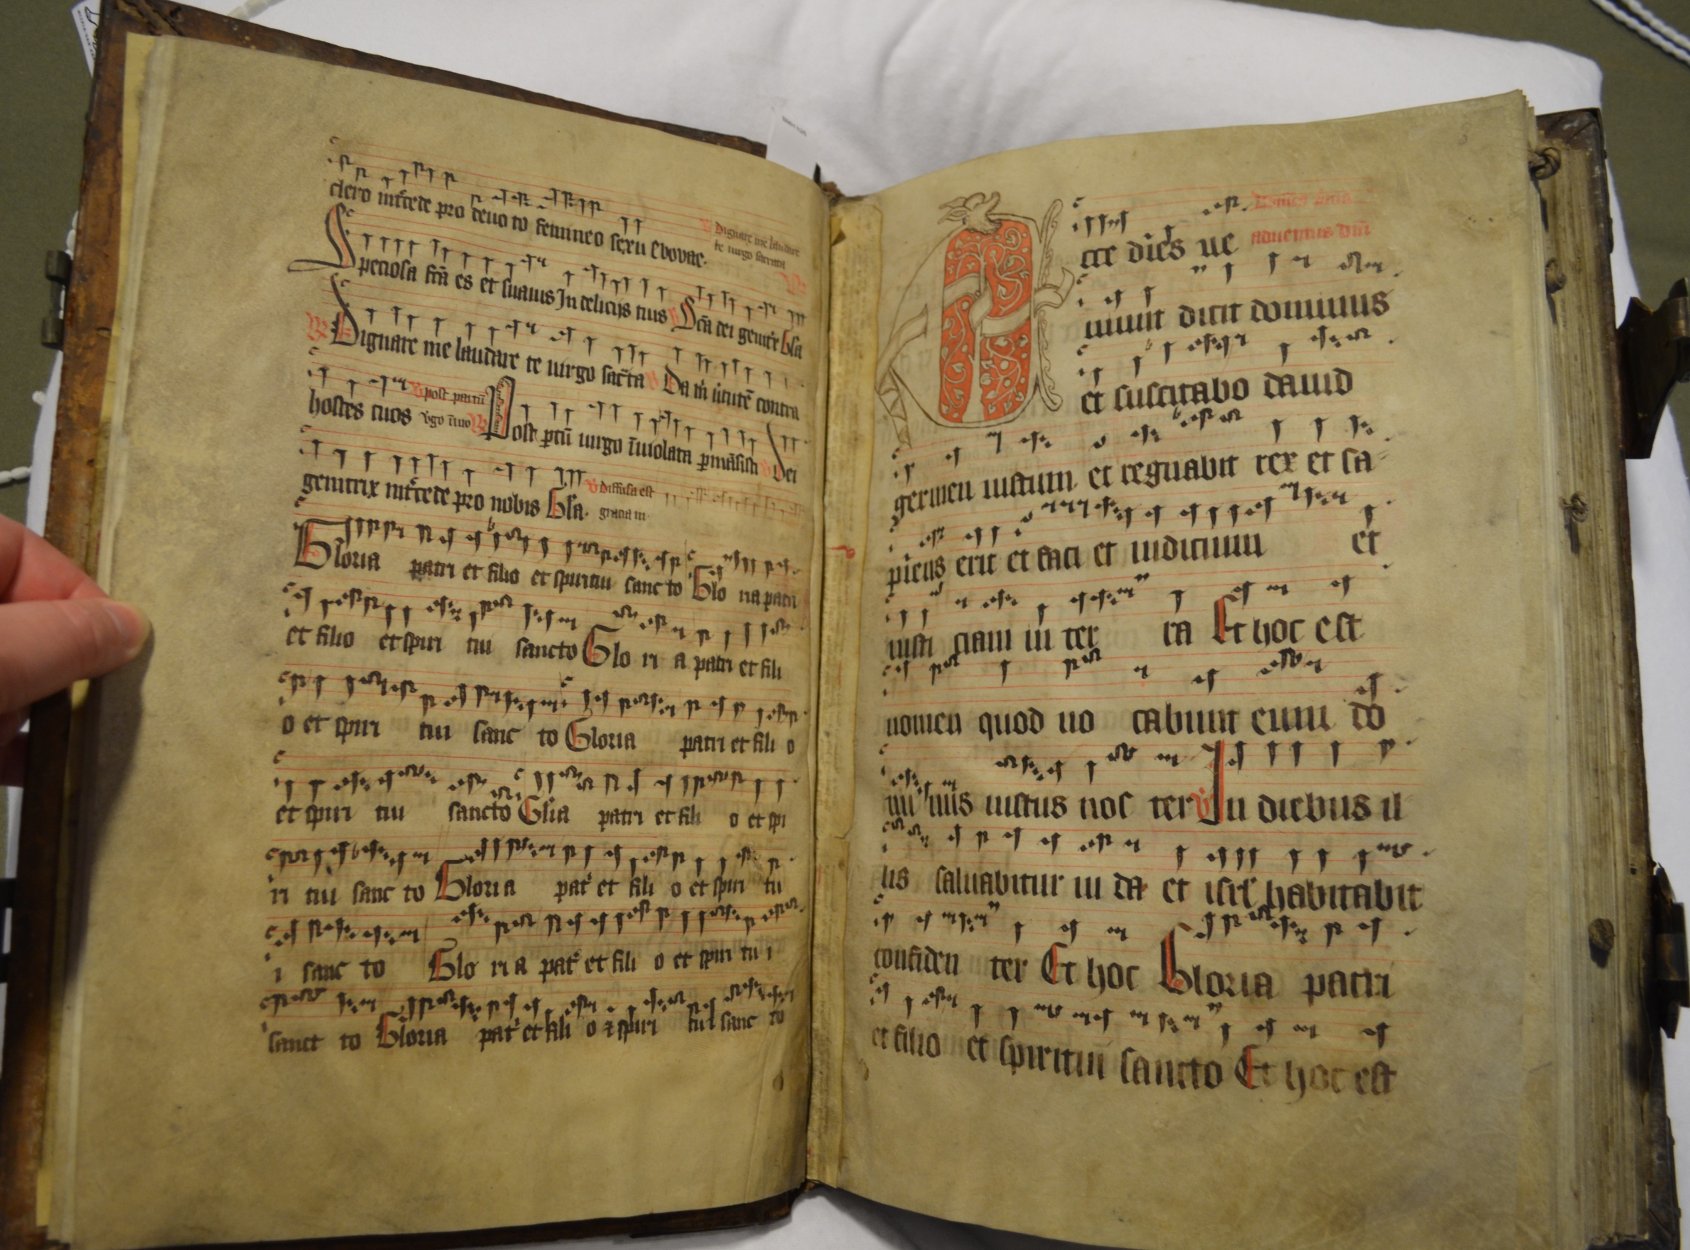 clero int̄cede pro deuo to femineo sexu Evovae.
℣ Dignare me laudare
te uirgo sacrata
Speciosa fc̄a es et suauis In delicijs tuis Sc̄a dei genit̄x Gl̄a
Dignare me laudare te uirgo sac̄ta Da m̄ uirtutē contra
hostes tuos
post partū
v̄go īuio
Post p̄tū uirgo īuiolata p̄māsisti Dei
genitrix int̄cede pro nobis Gl̄a.
℣ diffusa est
gratia in
Gloria patri et filio et spiritui sanc to Glo ria patri
et filio et spiri tui sancto Glo ri a patri et fili
o et spiri tui sanc to Gloria patri et fili o
et spiri tui sancto Gl̄ia patri et fili o et spi
ri tui sanc to Gloria pat̄ et fili o et spiri tu
i sanc to Glo ri a pat̄ et fili o et spiri tu i
sanct to Gloria pat̄ et fili o ⁊ spiri tui sanc to
aduentus dn̄i
Ecce dies ue
niunt dicit dominus
et suscitabo dauid
germen iustum et regnabit rex et sa
piens erit et faci et iudicium et
iusti ciam in ter ra Et hoc est
nomen quod uo cabunt eum do
mi nus iustus nos ter ℣ In diebus il
lis saluabitur iu da et isrl̄ habitabit
confiden ter Et hoc Gloria patri
et filio et spiritui sancto Et hoc est